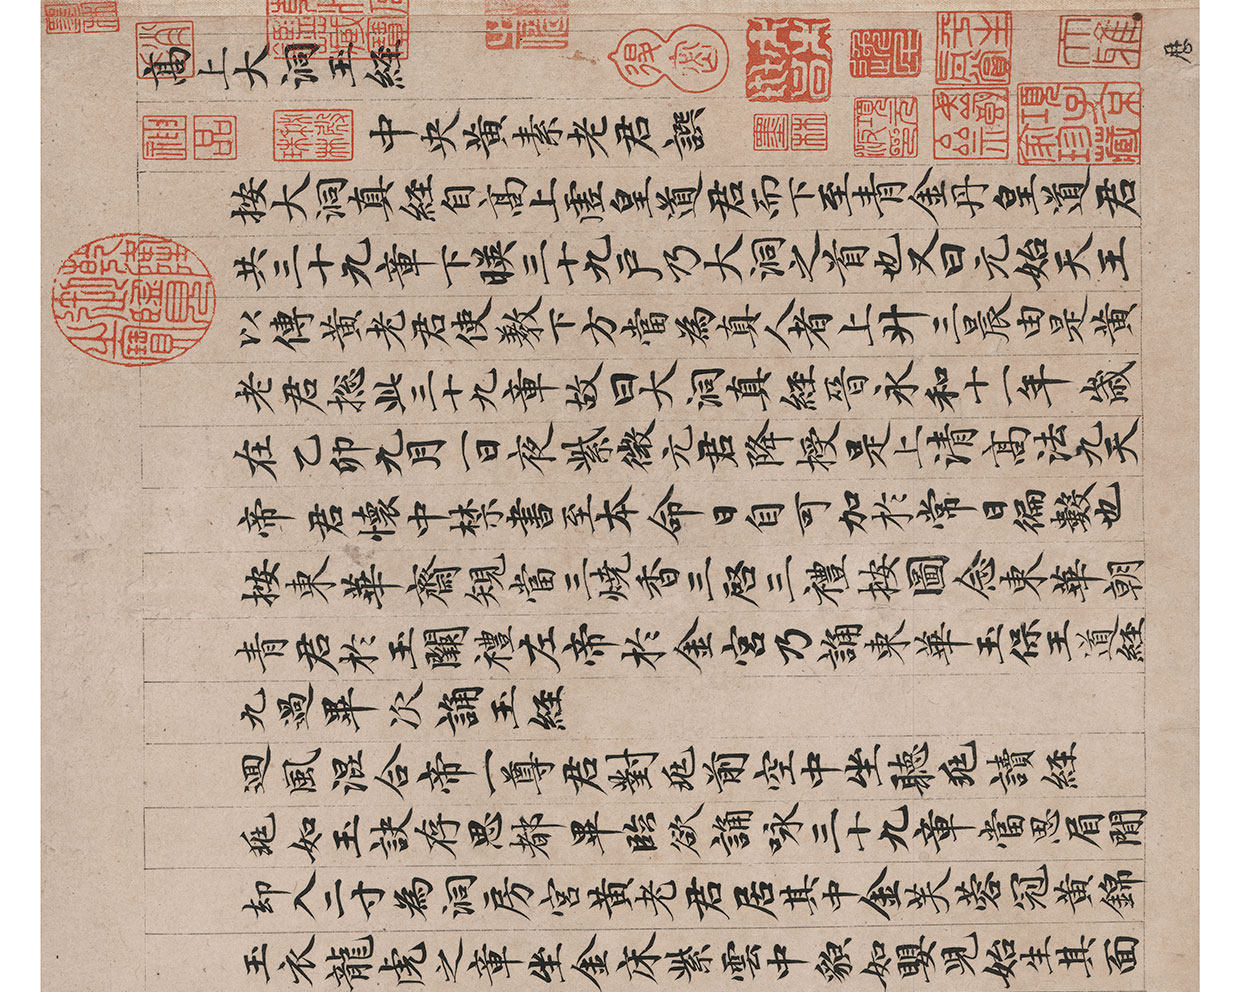 高上大洞玉經
中央黃素老君譔
按大洞真經自高上虛皇道君而下至青金丹皇道君
共三十九章下暎三十九戶乃大洞之首也又曰元始天王
以傳黃老君使教下方當為真人者上昇三晨由是黃
老君揔此三十九章故曰大洞真經晉永和十一年歲
在乙卯九月一日夜紫微元君降授是上清高法九天
帝君懷中禁書至本命日自可加於常日徧數也
按東華齋規當三燒香三啓三禮按圖念東華朝
青君於玉闕禮左帝於金宮乃誦東華玉保王道經
九過畢次誦玉經
迴風混合帝一尊君對兆前空中坐聽兆讀經
兆如玉訣存思都畢臨欲誦咏三十九章當思眉間
却入二寸為洞房宮黃老君居其中金芙蓉冠黃錦
玉衣龍虎之章坐金床紫雲中貌如嬰兒始生其面